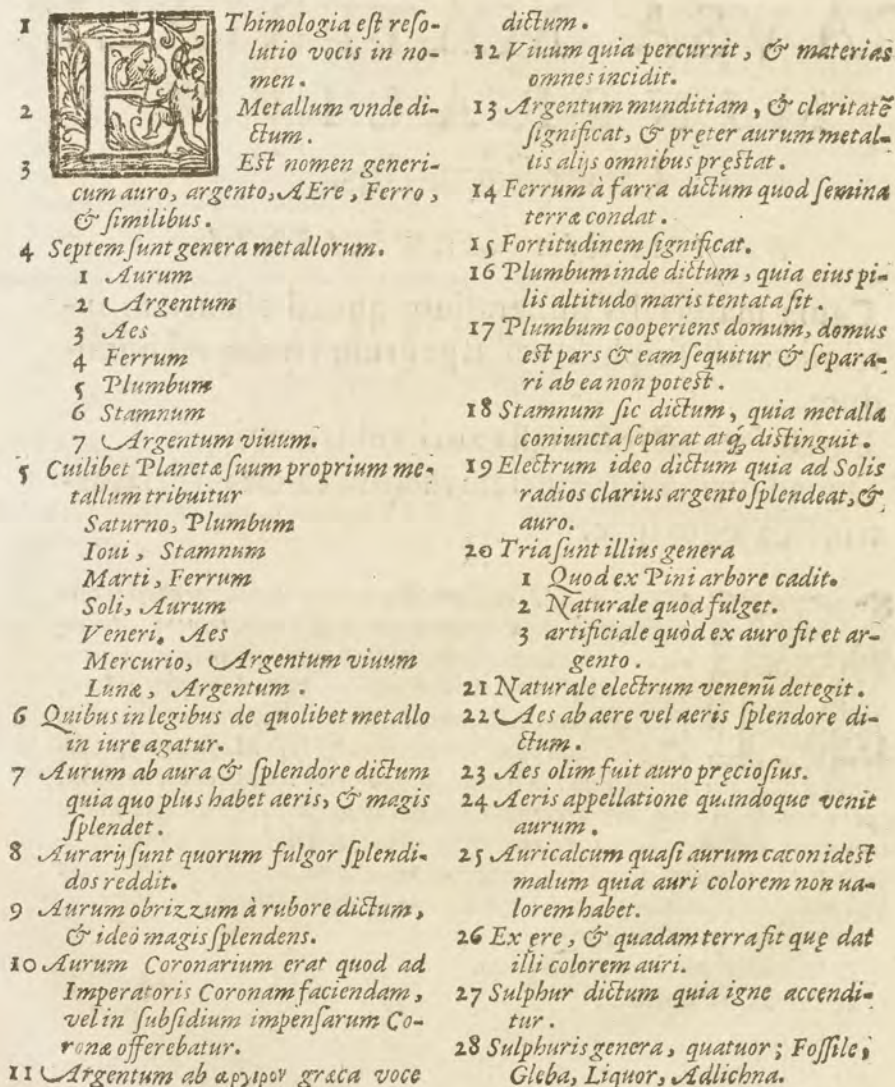 1 EThimologia est reso-
lutio vocis in no-
men.
2 Metallum vnde di-
ctum.
3 Est nomen generi-
cum auro, argento, AEre, Ferro,
& similibus.
4 Septem sunt genera metallorum.
1 Aurum
2 Argentum
3 Aes
4 Ferrum
5 Plumbum
6 Stamnum
7 Argentum viuum.
5 Cuilibet Planetæ suum proprium me-
tallum tribuitur
Saturno, Plumbum
Ioui, Stamnum
Marti, Ferrum
Soli, Aurum
Veneri, Aes
Mercurio, Argentum viuum
Lunæ, Argentum.
6 Quibus in legibus de quolibet metallo
in iure agatur.
7 Aurum ab aura & splendore dictum
quia quo plus habet aeris, & magis
splendet.
8 Aurarij sunt quorum fulgor splendi-
dos reddit.
9 Aurum obrizzum à rubore dictum,
& ideò magis splendens.
10 Aurum Coronarium erat quod ad
Imperatoris Coronam faciendam,
vel in subsidium impensarum Co-
ronæ offerebatur.
11 Argentum ab αργιρον græca voce
dictum.
12 Viuum quia percurrit, & materias
omnes incidit.
13 Argentum munditiam, & claritatē
significat, & pręter aurum metal-
lis alijs omnibus pręstat.
14 Ferrum à farra dictum quod semina
terræ condat.
15 Fortitudinem significat.
16 Plumbum inde dictum, quia eius pi-
lis altitudo maris tentata sit.
17 Plumbum cooperiens domum, domus
est pars & eam sequitur & separa-
ri ab ea non potest.
18 Stamnum sic dictum, quia metalla
coniuncta separat atq́; distinguit.
19 Electrum ideo dictum quia ad Solis
radios clarius argento splendeat, &
auro.
20 Tria sunt illius genera
1 Quod ex Pini arbore cadit.
2 Naturale quod fulget.
3 artificiale quòd ex auro fit et ar-
gento.
21 Naturale electrum venenū detegit.
22 Aes ab aere vel aeris splendore di-
ctum.
23 Aes olim fuit auro pręciosius.
24 Aeris appellatione quandoque venit
aurum.
25 Auricalcum quasi aurum cacon idest
malum quia auri colorem non ua-
lorem habet.
26 Ex ęre, & quadam terra fit quę dat
illi colorem auri.
27 Sulphur dictum quia igne accendi-
tur.
28 Sulphuris genera, quatuor; Fossile;
Gleba, Liquor, Adlichna.